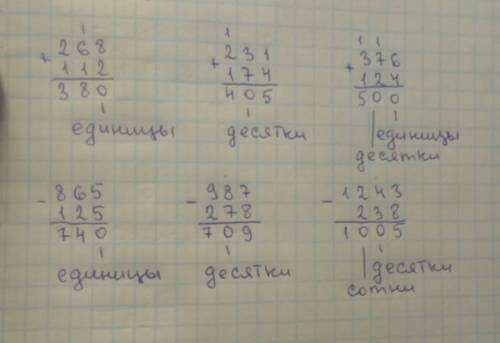 1 1 1 1
268 231 376
+ + +
112 174 124
380 405 500
единицы десятки единицы
десятки
- 865 - 987 - 1243
125 278 238
740 709 1005
единицы десятки десятки
сотни